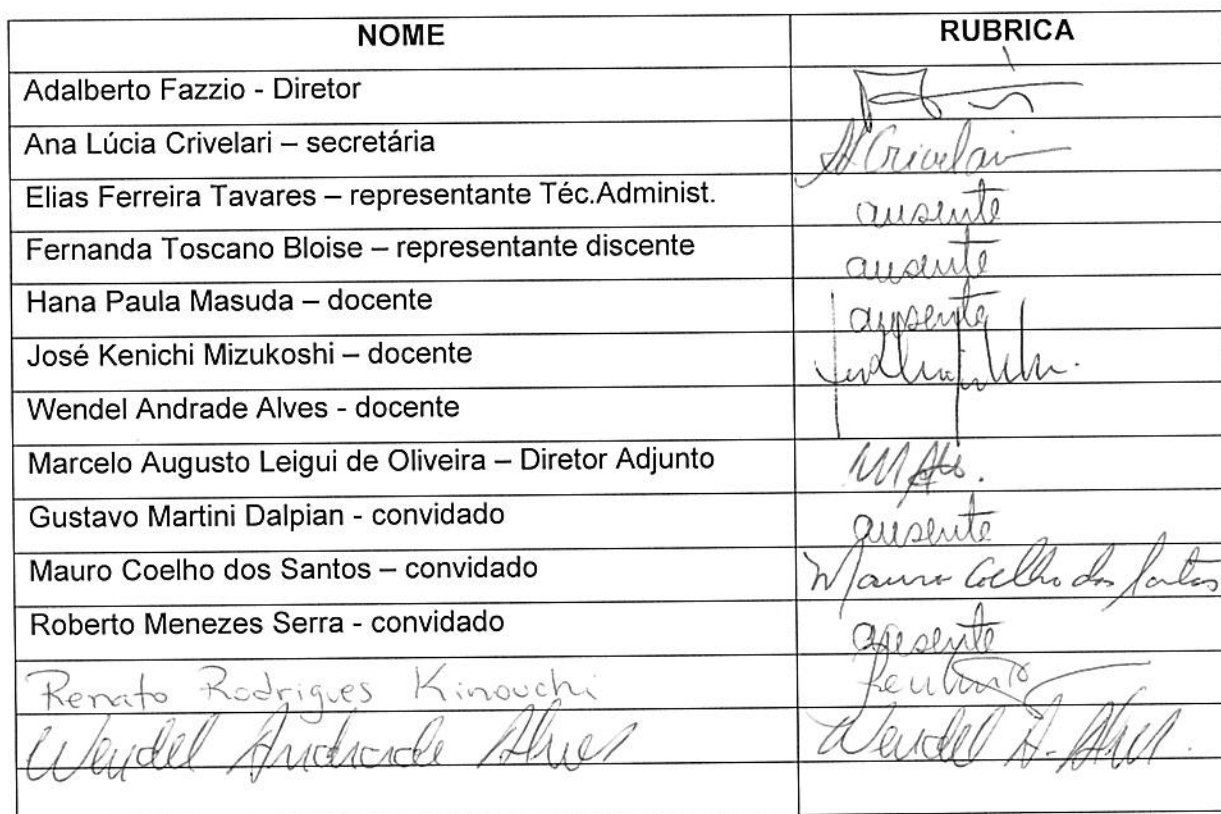 NOME RUBRICA
Adalberto Fazzio - Diretor
Ana Lúcia Crivelari – secretária A Crivelari
Elias Ferreira Tavares – representante Téc.Administ. ausente
Fernanda Toscano Bloise – representante discente ausente
Hana Paula Masuda – docente ausente
José Kenichi Mizukoshi – docente
Wendel Andrade Alves - docente
Marcelo Augusto Leigui de Oliveira – Diretor Adjunto
Gustavo Martini Dalpian - convidado ausente
Mauro Coelho dos Santos – convidado Mauro Coelho dos Santos
Roberto Menezes Serra - convidado ausente
Renato Rodrigues Kinouchi
Wendel Andrade Alves Wendel A. Alves.